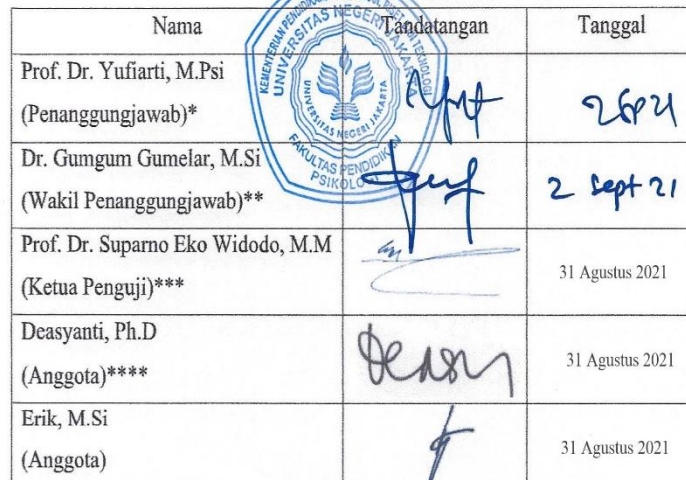 Nama Tandatangan Tanggal
Prof. Dr. Yufiarti, M.Psi
(Penanggungjawab)*
Dr. Gumgum Gumelar, M.Si
(Wakil Penanggungjawab)** 2 Sept 21
Prof. Dr. Suparno Eko Widodo, M.M
(Ketua Penguji)*** 31 Agustus 2021
Deasyanti, Ph.D
(Anggota)**** 31 Agustus 2021
Erik, M.Si
(Anggota) 31 Agustus 2021
UNIVERSITAS NEGERI JAKARTA
UNIVERSITAS NEGERI JAKARTA
FAKULTAS PENDIDIKAN
PSIKOLOGI